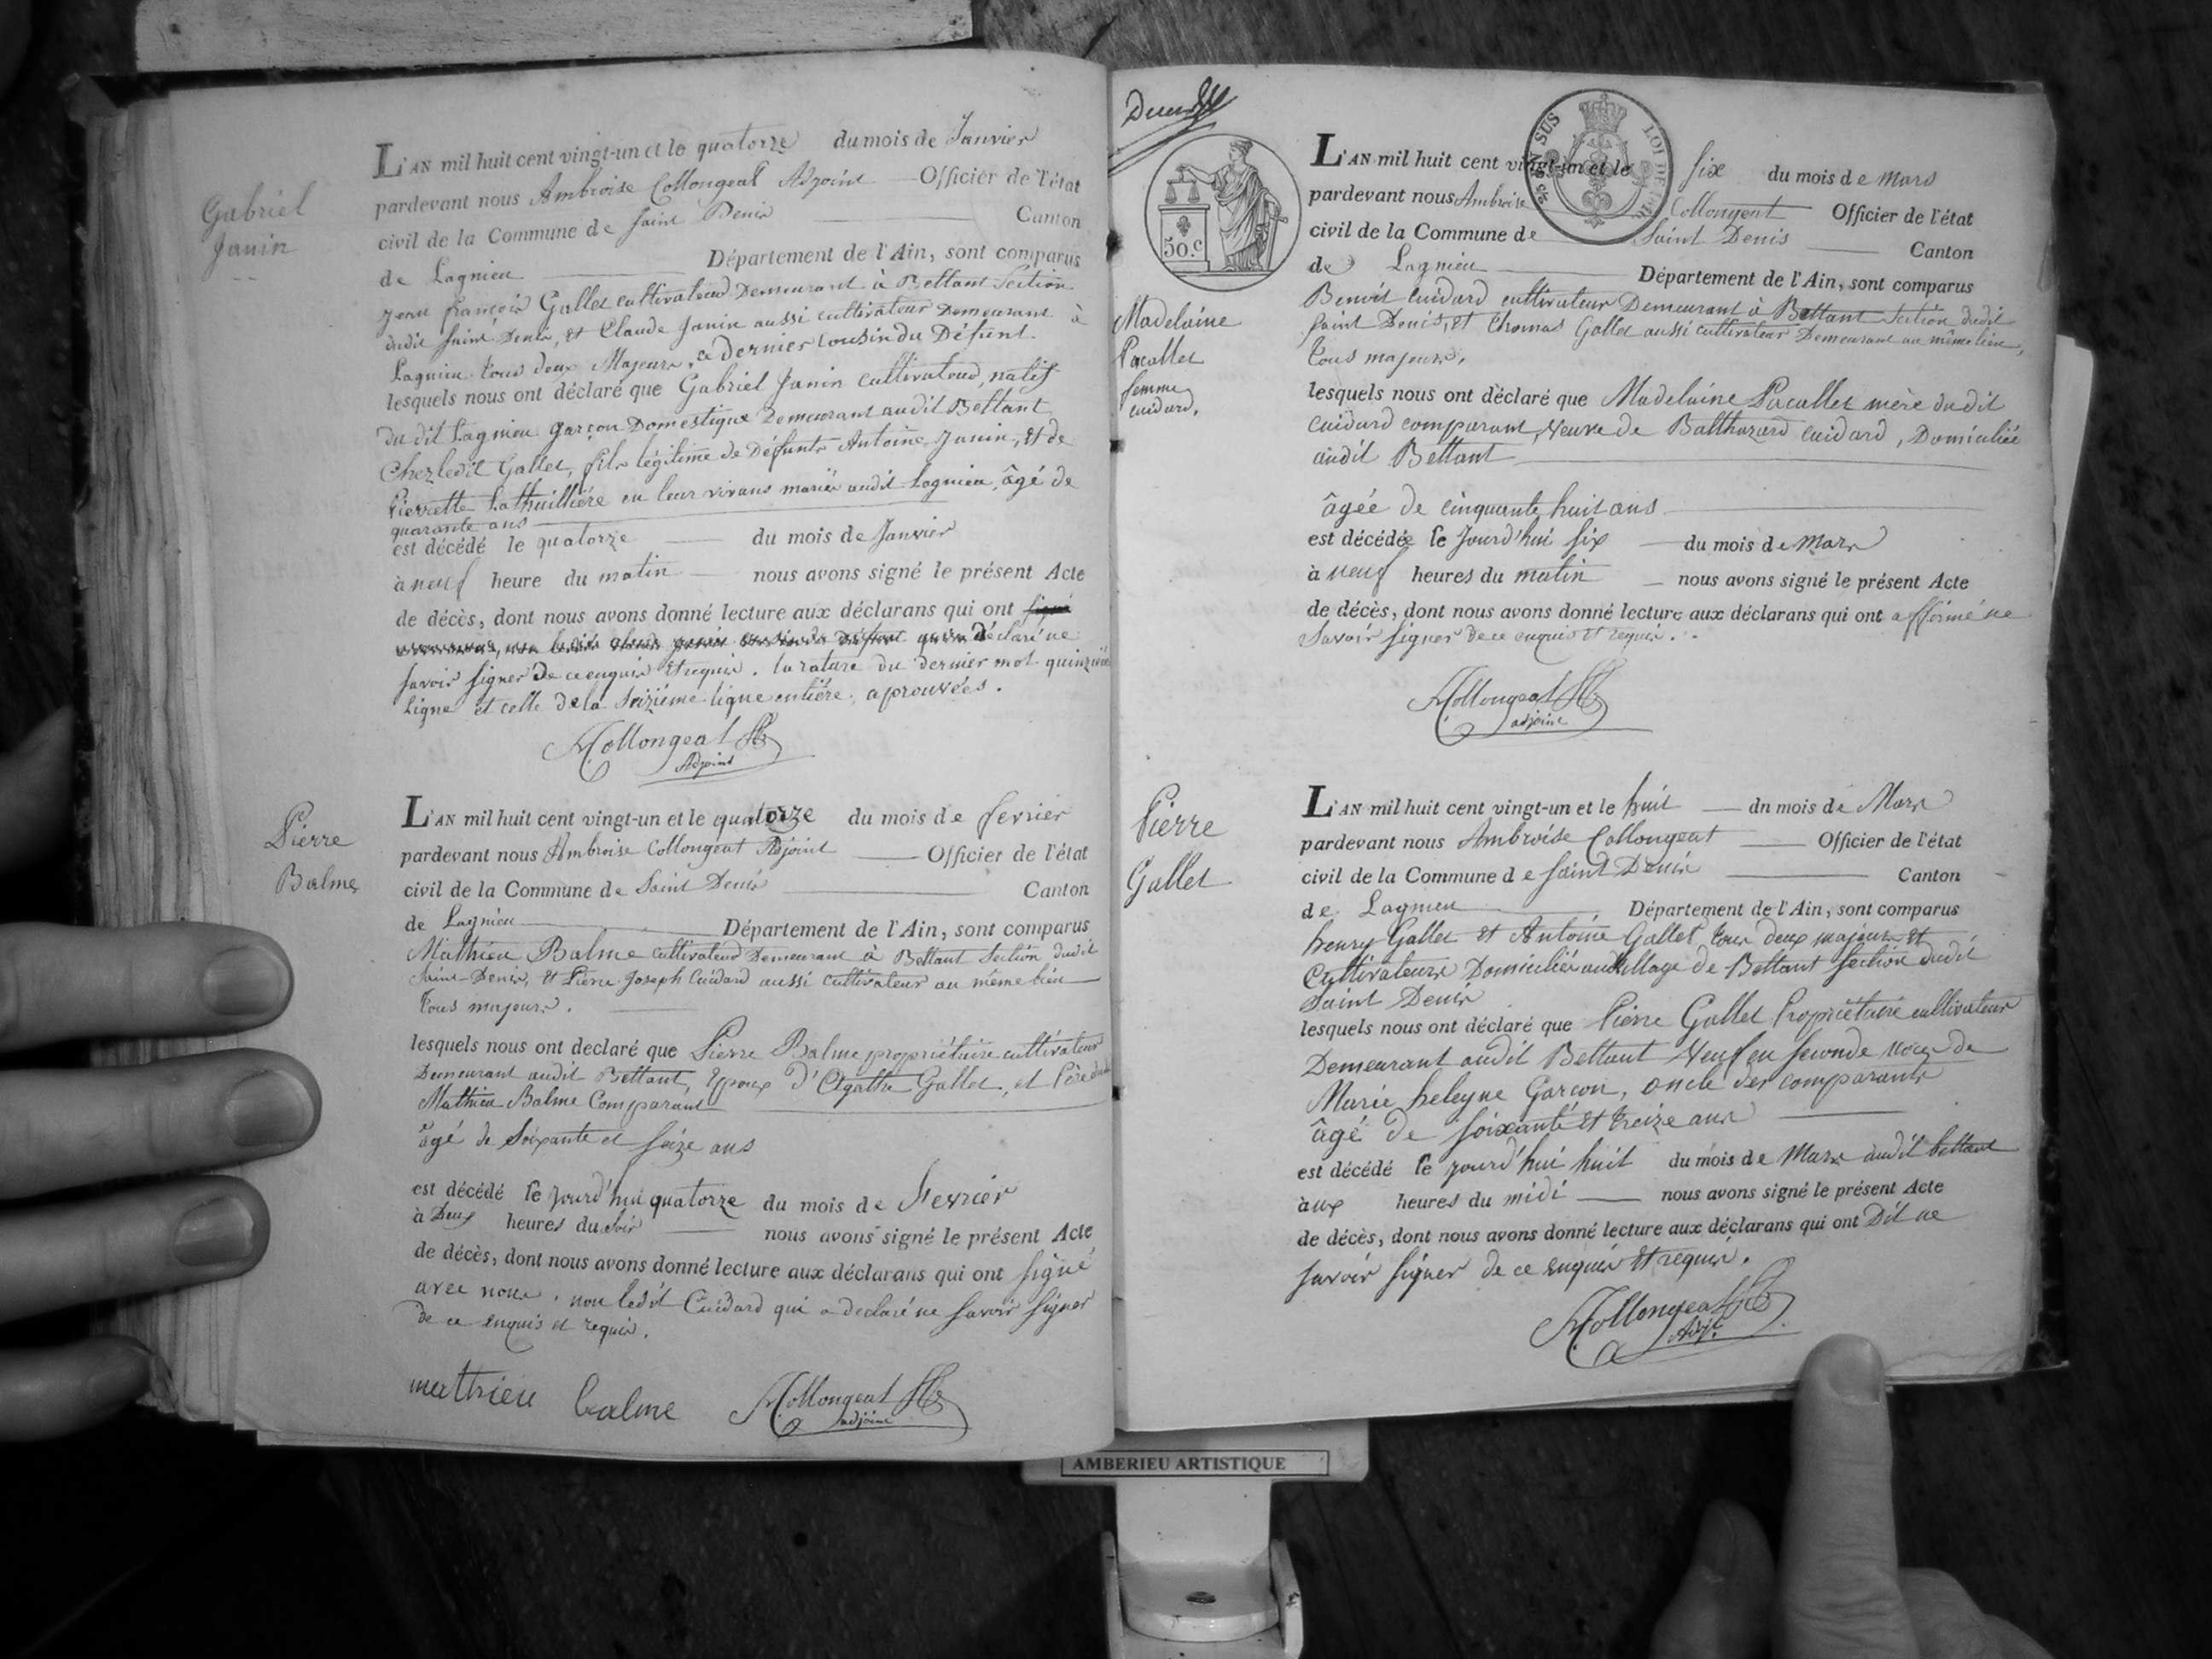 Gabriel
Janin
L'AN mil huit cent vingt-un et le quatorze du mois de Janvier
pardevant nous Ambroise Collongeat Adjoint Officier de l'état
civil de la Commune de Saint Denis Canton
de Lagnieu Département de l'Ain, sont comparus
jean françois Gallet cultivateur Demeurant à Bettant Section
dudit Saint Denis, et Claude Janin aussi cultivateur Demeurant à
Lagnieu tous deux Majeurs, ce dernier cousin du Défunt.
lesquels nous ont déclaré que Gabriel Janin cultivateur, natif
du dit Lagnieu garçon Domestique Demeurant audit Bettant
Chez ledit Gallet, fils légitime de Défunts Antoine Janin, et de
Pierrette Lathuillière en leur vivans mariés audit Lagnieu, âgé de
quarante ans
est décédé le quatorze du mois de Janvier
à neuf heure du matin nous avons signé le présent Acte
de décès, dont nous avons donné lecture aux déclarans qui ont signé
déclaré ne
savoir signer de ce enquis et requis. la rature du dernier mot quinzième
Ligne et celle de la Seizième ligne entière, aprouvées.
Collongeat
Adjoint
Pierre
Balme
L'AN mil huit cent vingt-un et le quatorze du mois de fevrier
pardevant nous Ambroise Collongeat Adjoint Officier de l'état
civil de la Commune de Saint Denis Canton
de Lagnieu Département de l'Ain, sont comparus
Mathieu Balme cultivateur Demeurant à Bettant Section dudit
Saint-Denis, et Pierre Joseph Cuidard aussi cultivateur au même lieu
tous majeurs.
lesquels nous ont declaré que Pierre Balme propriétaire cultivateur
Demeurant audit Bettant, Epoux d'Agathe Gallet, et Père dudit
Mathieu Balme Comparant
âgé de Soixante et seize ans
est décédé le jourd'hui quatorze du mois de Fevrier
à Deux heures du Soir nous avons signé le présent Acte
de décès, dont nous avons donné lecture aux déclarans qui ont signé
avec nous, non ledit Cuidard qui a declaré ne savoir signer
De ce enquis et requis.
mathieu balme Collongeat
adjoint
50.C
SUS LOI DE
Madelaine
Pacallet
femme
cuidard.
L'AN mil huit cent vingt-un et le six du mois de mars
pardevant nous Ambroise Collongeat Officier de l'état
civil de la Commune de Saint Denis Canton
de Lagnieu Département de l'Ain, sont comparus
Benoit Cuidard cultivateur Demeurant à Bettant Section dudit
saint Denis, et Thomas Gallet aussi cultivateur Demeurant au même lieu,
Tous majeurs.
lesquels nous ont déclaré que Madelaine Pacallet mère du dit
cuidard comparant, Veuve de Balthazard cuidard, Domiciliée
audit Bettant
âgée de cinquante huit ans
est décédée le Jourd'hui six du mois de Mars
à neuf heures du matin nous avons signé le présent Acte
de décès, dont nous avons donné lecture aux déclarans qui ont affirmé ne
savoir signer de ce enquis et requis.
Collongeat
adjoint
Pierre
Gallet
L'AN mil huit cent vingt-un et le huit dn mois de Mars
pardevant nous Ambroise Collongeat Officier de l'état
civil de la Commune de Saint Denis Canton
de Lagnieu Département de l'Ain, sont comparus
henry Gallet et Antoine Gallet tous deux majeurs et
Cultivateurs Domiciliés au village de Bettant section dudit
Saint Denis
lesquels nous ont déclaré que Pierre Gallet Propriétaire cultivateur
Demeurant audit Bettant Veuf en seconde noces de
Marie heleyne Garçon, oncle des comparants
âgé de soixante et treize ans
est décédé le jourd'hui huit du mois de Mars audit bettant
à ux heures du midi nous avons signé le présent Acte
de décès, dont nous avons donné lecture aux déclarans qui ont Dit ne
savoir signer de ce enquis et requis.
Collongeat
Adjt
AMBERIEU ARTISTIQUE